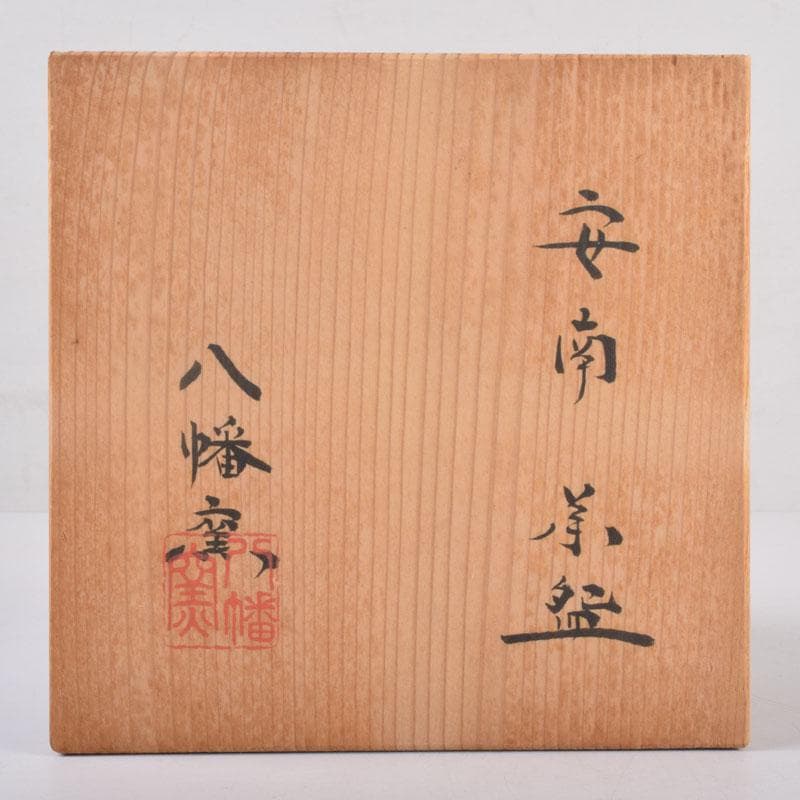 安南 茶盌
八幡窯
八幡窯